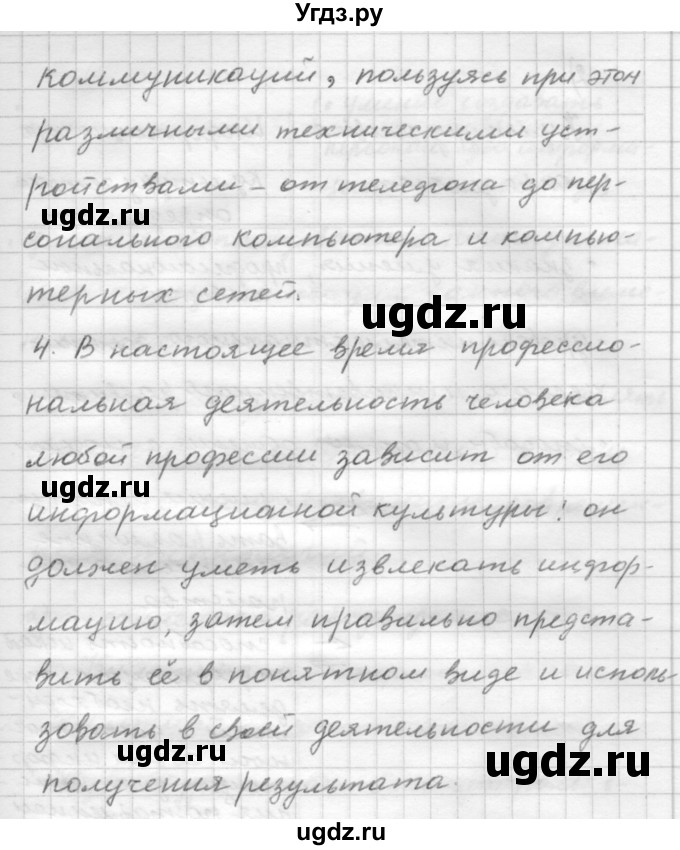 Угдз.ру
коммуникаций, пользуясь при этом
различными техническими уст-
ройствами - от телефона до пер-
ugdz.ru
сонального компьютера и компью-
терных сетей.
ugdz.ru
4. В настоящее время профессио-
нальная деятельность человека
любой профессии зависит от его
ugdz.ru
информационной культуры: он
должен уметь извлекать инфор-
мацию, затем правильно предста-
вить её в понятном виде и исполь-
зовать в своей деятельности для
ugdz.ru
ugdz.ru
получения результата.
ugdz.ru